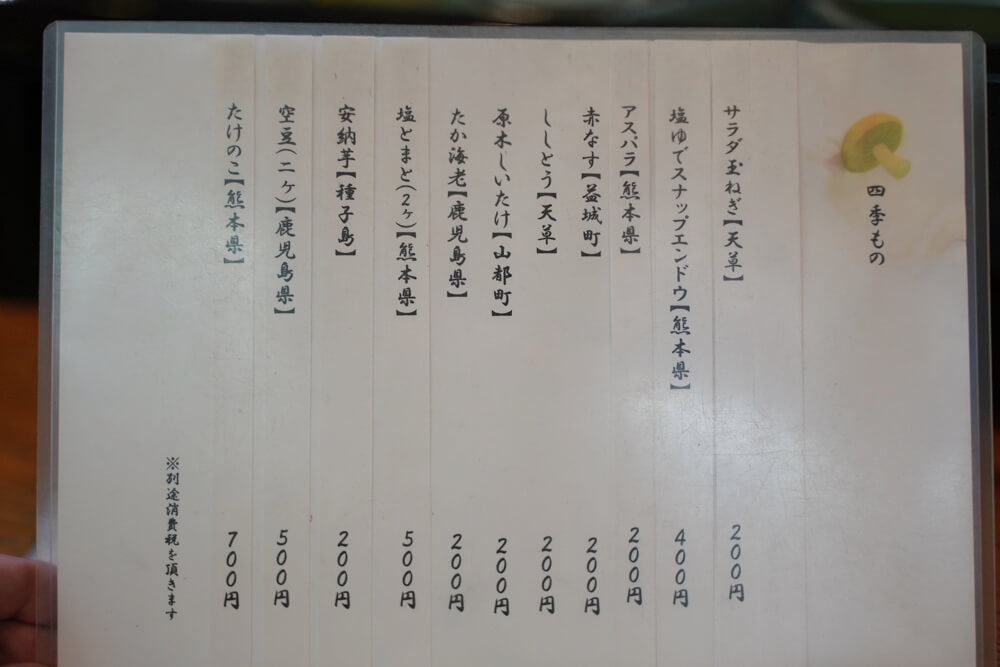 四季もの
サラダ玉ねぎ【天草】 200円
塩ゆでスナップエンドウ【熊本県】 400円
アスパラ【熊本県】 200円
赤なす【益城町】 200円
ししとう【天草】 200円
原木しいたけ【山都町】 200円
たか海老【鹿児島県】 200円
塩とまと(2ヶ)【熊本県】 500円
安納芋【種子島】 200円
空豆(二ヶ)【鹿児島県】 500円
たけのこ【熊本県】 700円
※別途消費税を頂きます